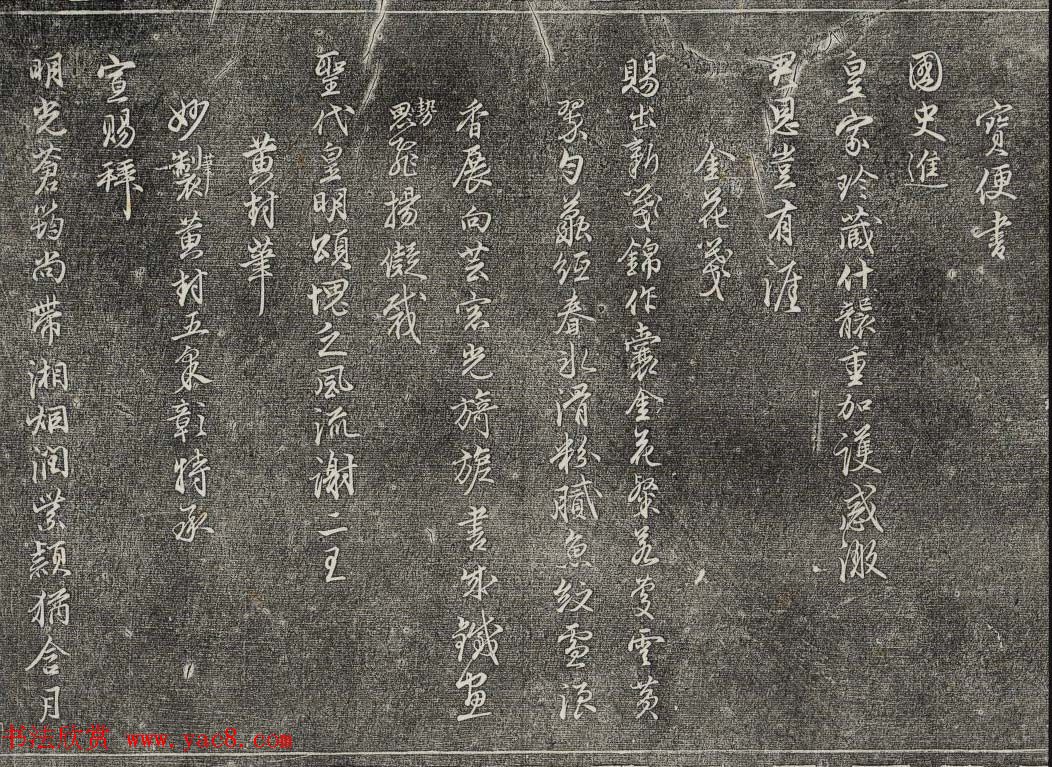 寶便書
國史進
皇家珍藏什襲重加護感激
君恩豈有涯
金花箋
賜出新箋錦作囊金花粲若雲黃
翠勻紙春冰滑粉膩魚紋雪浪
香展向芸窗光旖旎書成鐵畫
勢思飛揚儗裁
聖代皇明頌愧乏風流謝二王
黃封筆
妙製黃封五采彰特承
宣賜拜
明光蒼筠尚帶湘烟潤紫穎猶含月
书法欣赏 www.yac8.com